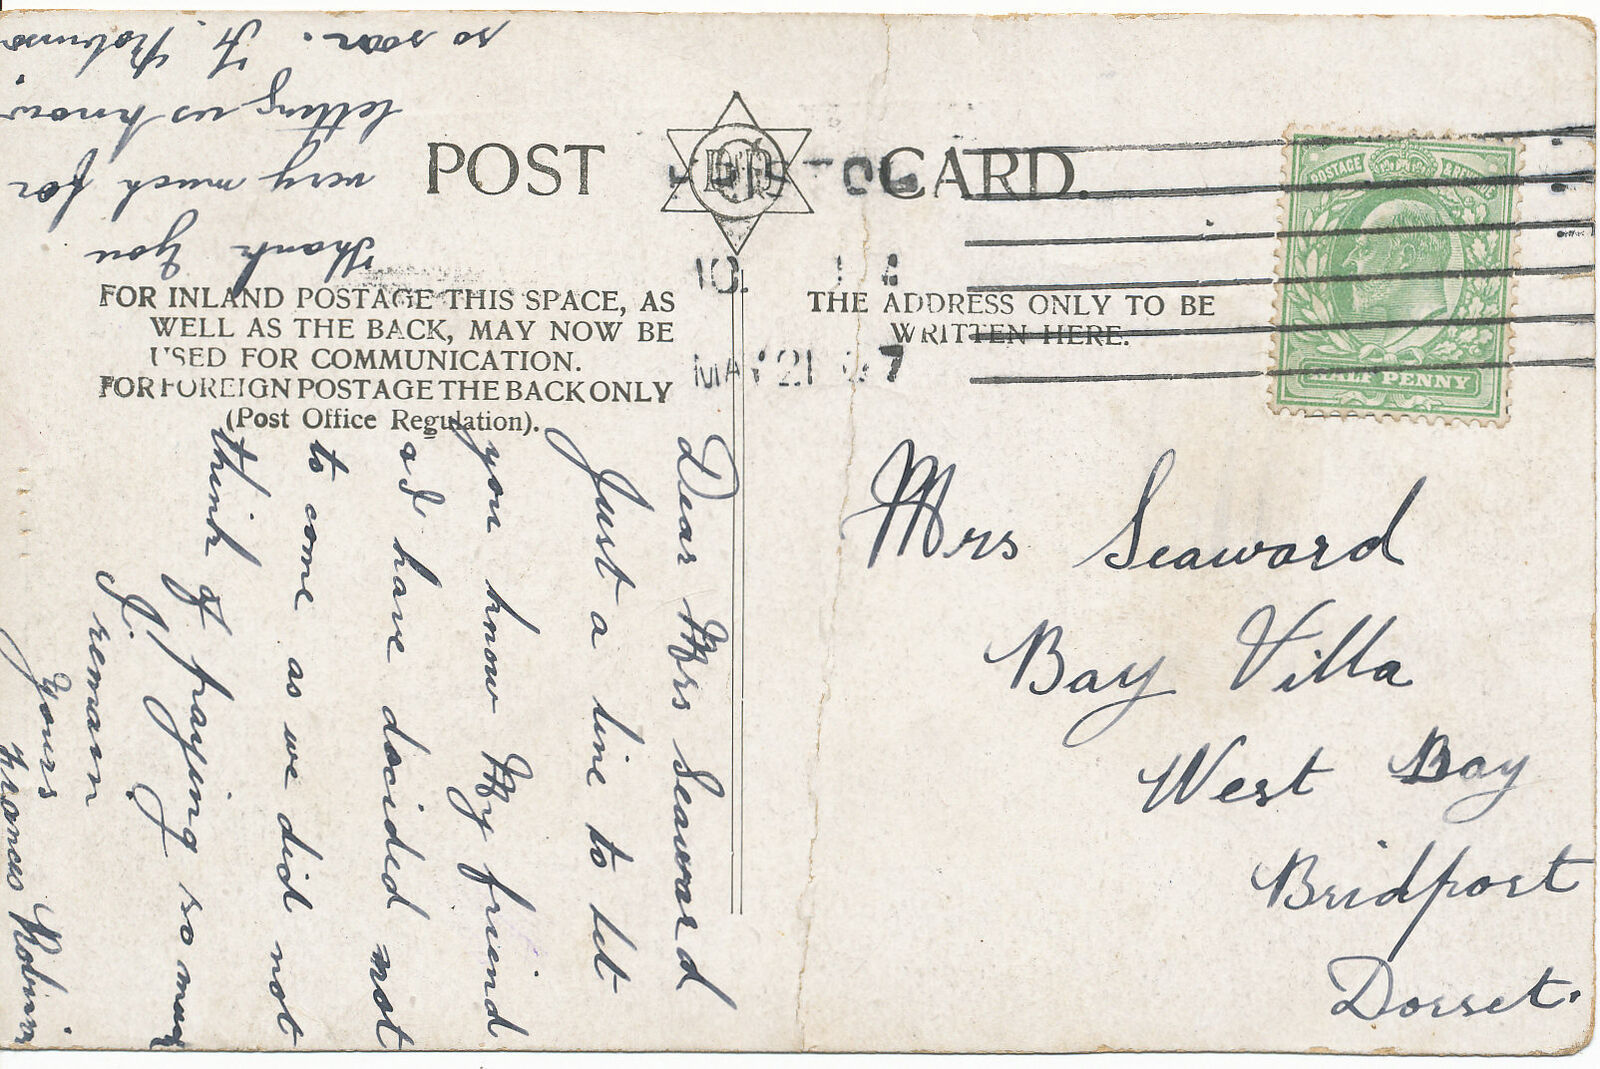 POST CARD.
FOR INLAND POSTAGE THIS SPACE, AS
WELL AS THE BACK, MAY NOW BE
USED FOR COMMUNICATION.
FOR FOREIGN POSTAGE THE BACK ONLY
(Post Office Regulation).
THE ADDRESS ONLY TO BE
WRITTEN HERE.
POSTAGE & REVENUE
HALF PENNY
MAY 21 07
Mrs Seaward
Bay Villa
West Bay
Bridport
Dorset.
Dear Mrs Seaward
Just a line to let
you know My friend
ad have decided not
to come as we did not
think of paying so much
I. remain
yours
Frances Robins
Thank you
very much for
letting us know
so soon. F. Robinso